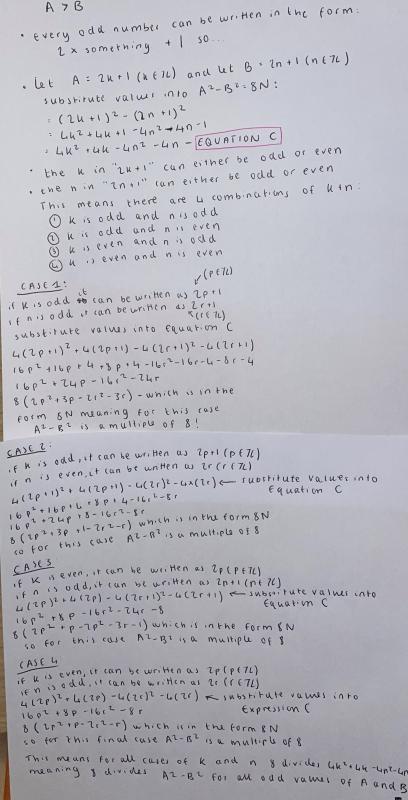 A > B
• Every odd number can be written in the form:
2 x something + 1 so...
• Let A = 2k+1 (k∈ℤ) and let B = 2n+1 (n∈ℤ)
substitute values into A²-B² = 8N:
= (2k+1)² - (2n+1)²
= 4k²+4k+1-4n²-4n-1
= 4k²+4k-4n²-4n - EQUATION C
• the k in "2k+1" can either be odd or even
• the n in "2n+1" can either be odd or even
This means there are 4 combinations of k+n:
① k is odd and n is odd
② k is odd and n is even
③ k is even and n is odd
④ k is even and n is even
CASE 1:
(p∈ℤ)
if k is odd it can be written as 2p+1
if n is odd it can be written as 2r+1
(r∈ℤ)
substitute values into Equation C
4(2p+1)²+4(2p+1)-4(2r+1)²-4(2r+1)
16p²+16p+4+8p+4-16r²-16r-4-8r-4
16p²+24p-16r²-24r
8(2p²+3p-2r²-3r) - which is in the
form 8N meaning for this case
A²-B² is a multiple of 8!
CASE 2:
if k is odd, it can be written as 2p+1 (p∈ℤ)
if n is even, it can be written as 2r (r∈ℤ)
4(2p+1)²+4(2p+1)-4(2r)²-4x(2r) ← substitute values into
Equation C
16p²+16p+4+8p+4-16r²-8r
16p²+24p+8-16r²-8r
8(2p²+3p+1-2r²-r) which is in the form 8N
so for this case A²-B² is a multiple of 8
CASE 3
if k is even, it can be written as 2p (p∈ℤ)
if n is odd, it can be written as 2n+1 (n∈ℤ)
4(2p)²+4(2p)-4(2r+1)²-4(2r+1) ← substitute values into
Equation C
16p²+8p-16r²-24r-8
8(2p²+p-2r²-3r-1) which is in the form 8N
so for this case A²-B² is a multiple of 8
CASE 4
if k is even, it can be written as 2p (p∈ℤ)
if n is odd, it can be written as 2r (r∈ℤ)
4(2p)²+4(2p)-4(2r)²-4(2r) ← substitute values into
Expression C
16p²+8p-16r²-8r
8(2p²+p-2r²-r) which is in the form 8N
so for this final case A²-B² is a multiple of 8
This means for all cases of k and n 8 divides 4k²+4k-4n²-4n
meaning 8 divides A²-B² for all odd values of A and B